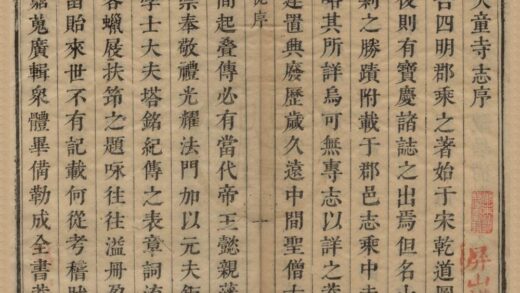 天童寺志序
四明郡乘之著始于宋乾道圖
後則有寶慶諸志之出焉但名山
剎之勝蹟附載于郡邑志乘中
略其所詳烏可無專志以詳之
建置興廢歷歲久遠中間聖僧
序
一
間起叠傳必有當代帝王懿親
崇奉敬禮光耀法門加以元夫鉅
學士大夫塔銘紀傳之表章詞
客蠟屐扶筇之題咏往往溢册
留貽來世不有記載何從考稽
嘉蒐廣輯衆體畢備勒成全書
屏山